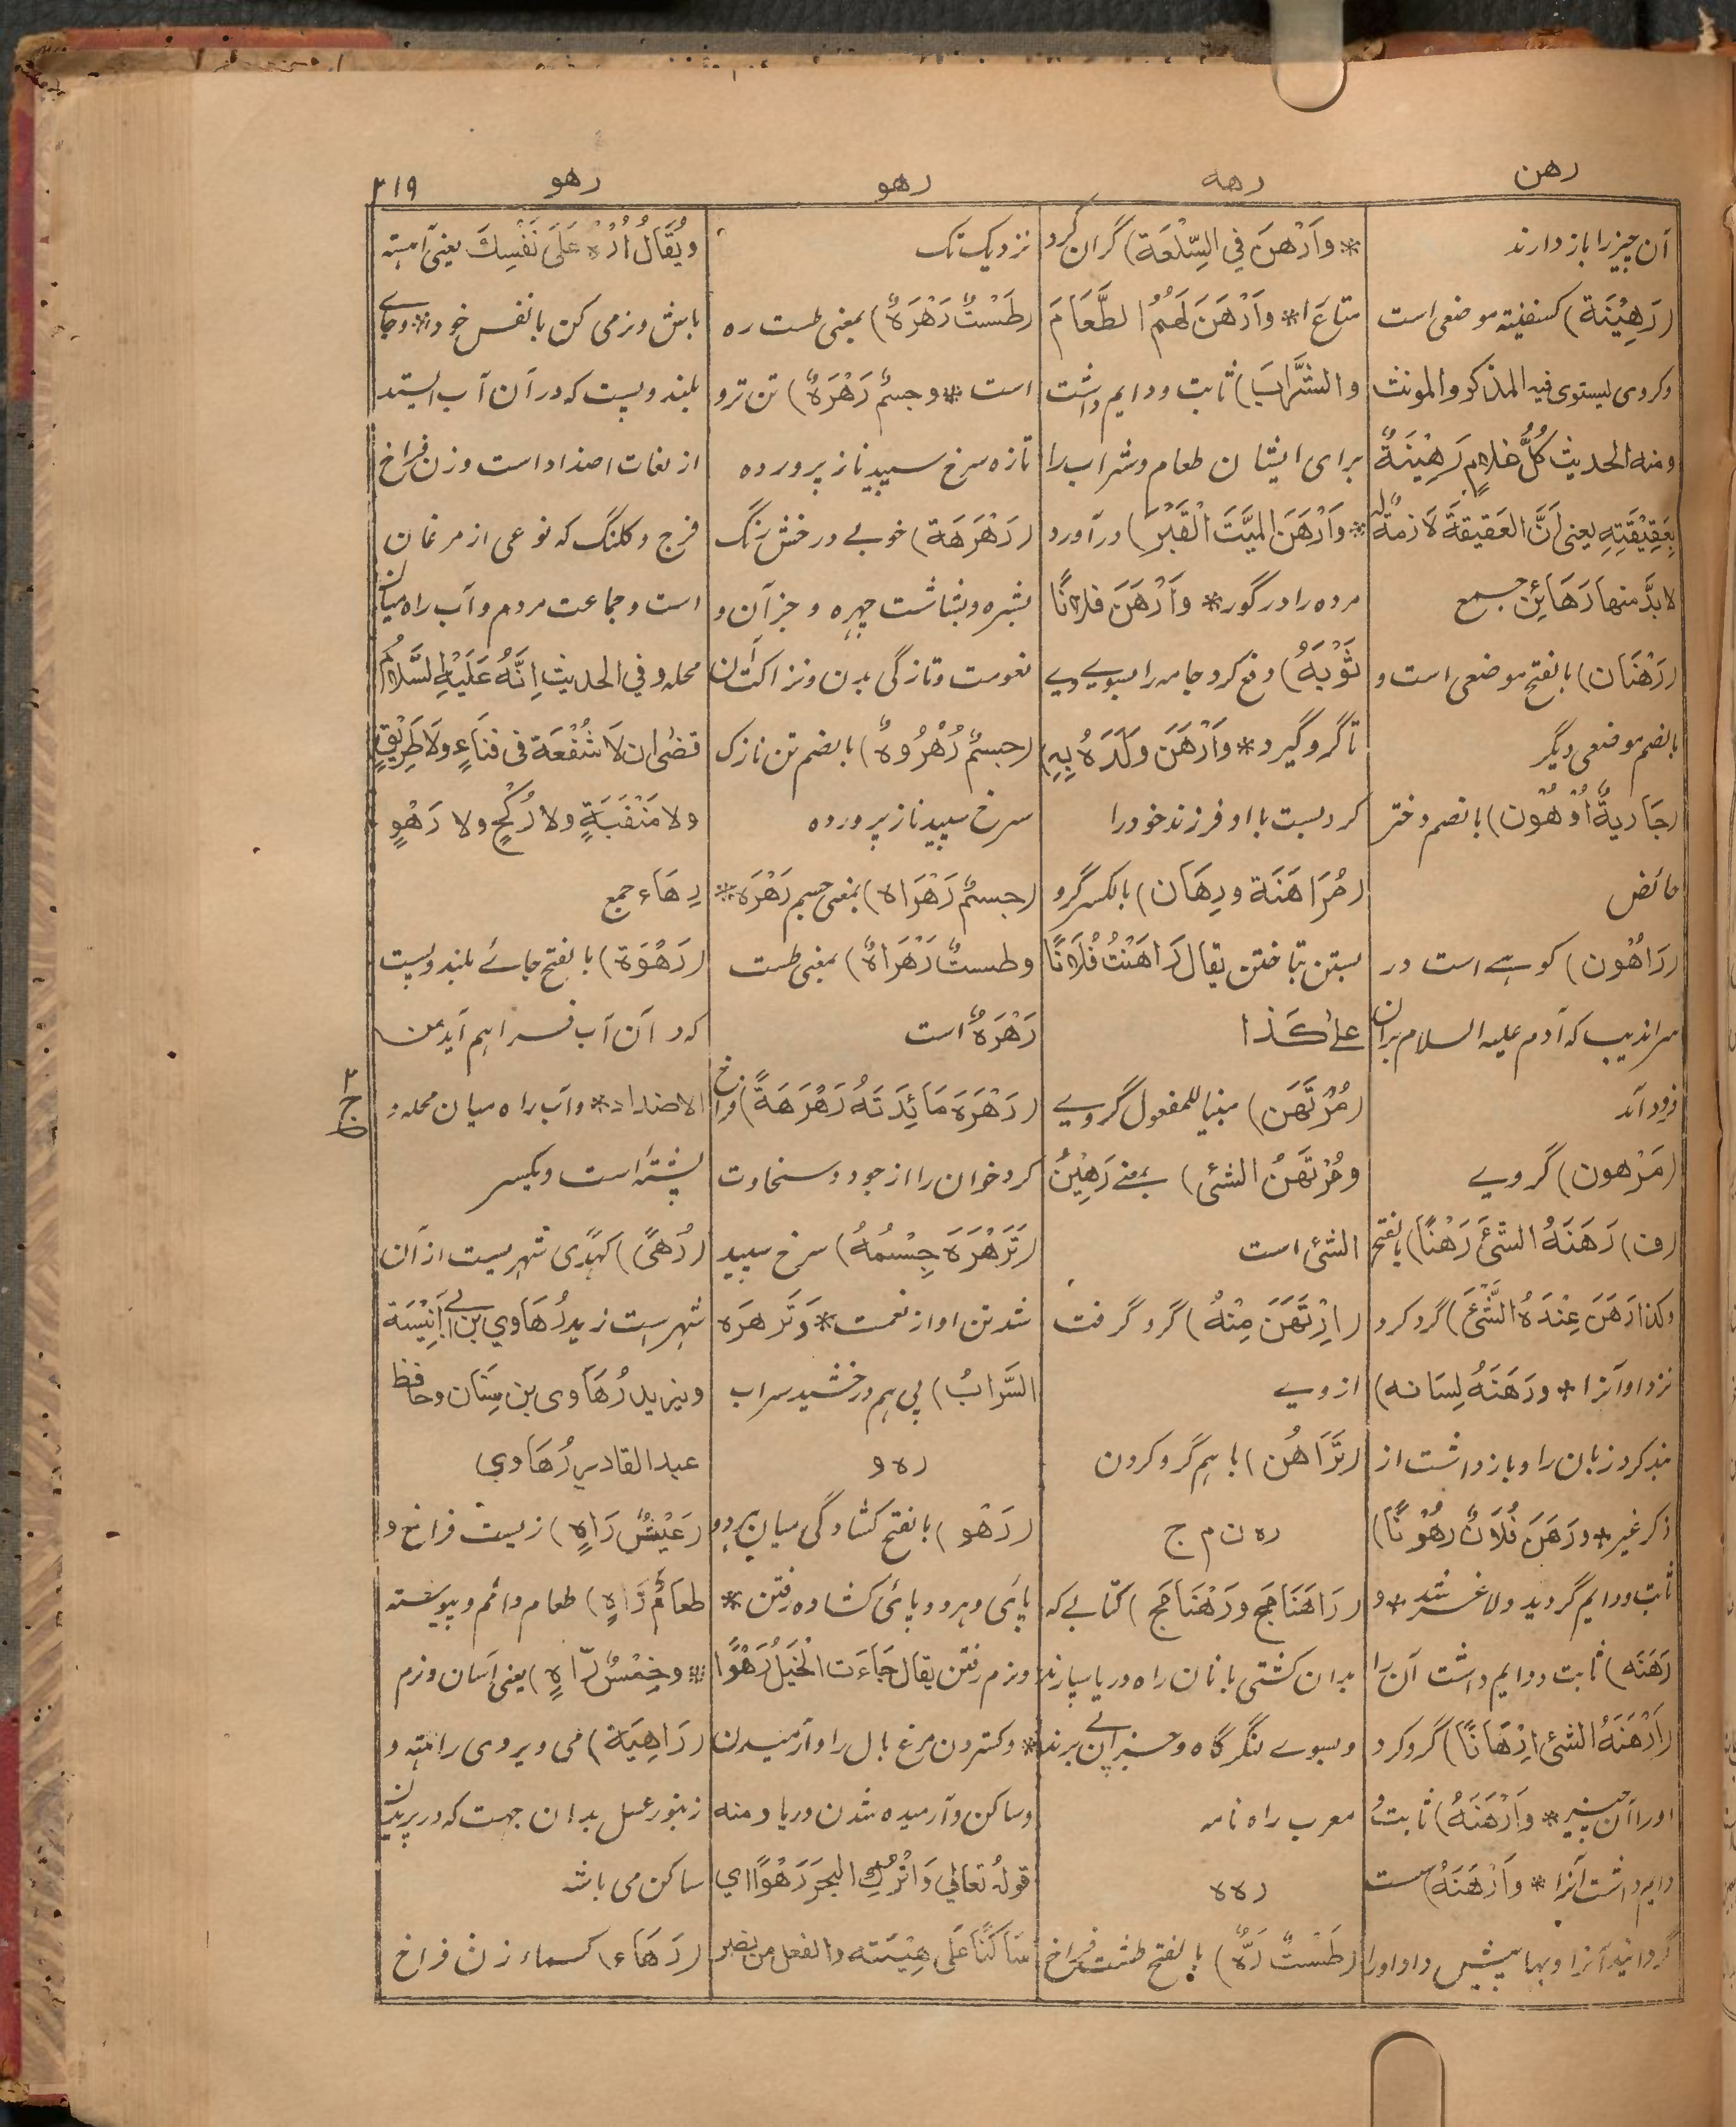 رهن
رهه
رهو
رهو
۲۱۹
آن چیز را باز دارند
(رَهِیْنَة) کسفینه موضعی است
و کروی یستوی فیه المذکر والمونث
ومنه الحدیث کُلُّ غُلامٍ رَهِیْنَةٌ
بِعَقِیْقَتِهِ یعنی اَنَّ العَقیقةَ لَازمةٌ له
لابدَّ منها رَهَائِن جمع
(رَهْنَان) بالفتح موضعی است و
بالضم موضعی دیگر
(جَاریةٌ اُرْهُون) بالضم دختر
حائض
(رَاهُون) کوهے است در
سراندیب که آدم علیه السلام بران
فرود آمد
(مَرْهون) گرویے
(ف) رَهَنَهُ الشَّئَ رَهْنًا) بالفتح
وکذا رَهَنَ عِنْدَهُ الشَّئَ) گرو کرد
نزد او آنرا * ورَهَنَهُ لِسَانه)
بند کرد زبان را و باز داشت از
ذکر غیر * ورَهَنَ فُلَانٌ رهُوْنًا)
ثابت و دایم گردید و لاغر شد * و
رَهَنَه) ثابت و دایم داشت آن را
(اَرْهَنَهُ الشئَ اِرْهَانًا) گرو کرد
اورا آن چیز * وَاَرْهَنَهُ) ثابت و
دایم داشت آنرا * وَاَرْهَنَهُ) سست
گردانید آنرا و بها پیشین داد اورا
* واَرْهنَ فِي السِّلْعَة) گران کرد
متاع را * واَرْهَنَ لَهُمُ الطَّعَامَ
والشَّرَابَ) ثابت و دایم داشت
برای ایشان طعام و شراب را
* وَاَرْهَنَ المیَّتَ الْقَبْرَ) در آورد
مرده را در گور * وَاَرْهَنَ فلانًا
ثَوْبَهُ) دفع کرد جامه را بسوی وے
تا گرو گیرد * وَاَرْهَنَ وَلَدَهُ بِهِ)
گرو بست با او فرزند خود را
(مُرَاهَنَة ورِهَان) بالکسر گرو
بستن بتاختن یقال رَاهَنْتُ فُلَانًا
علی کَذا
(مُرْتَهَن) مبنیا للمفعول گرویے
ومُرْتَهَنُ الشئ) بمعنے رَهِیْنُ
الشئ است
(اِرْتَهَنَ مِنْهُ) گرو گرفت
از وے
(تَرَاهُن) باهم گرو کردن
ر ه ن م ج
(رَاهْنَامَج ورَهْنَامَج) کتابے که
بدان کشتی بانان راه دریا سپارند
و بسوے لنگر گاه و جز آن پے برند
معرب راه نامه
ر ه ه
(طَسْتٌ رَهٌّ) بالفتح طشت فراخ
نزدیک تک
(طَسْتٌ رَهْرَهٌ) بمعنی طست ره
است * وجسمٌ رَهْرَهٌ) تن تر و
تازه سرخ سپید ناز پرورده
(رَهْرَهَة) خوبے درخش رنگ
بشره و بشاشت چهره و جز آن و
نعومت و تازگی بدن و نزاکت آن
(جسمٌ رُهْرُوهٌ) بالضم تن نازک
سرخ سپید ناز پرورده
(جسمٌ رَهْرَاه) بمعنی جسم رَهْرَه *
وطستٌ رَهْرَاهٌ) بمعنی طست
رَهْرَهٌ است
(رَهْرَهَ مَائِدَتَهُ رَهْرَهَةً) فراخ
کرد خوان را از جود و سخاوت
(تَرَهْرَهَ جِسْمُهُ) سرخ سپید
شد تن او از نعمت * وَتَرَهرَه
السَّرابُ) پی هم درخشید سراب
ر ه و
(رَهْو) بالفتح کشادگی میان هر دو
پائی و هر دو پائی کشاده رفتن *
و نرم رفتن یقال جَاءَت الْخَیْلُ رَهْوًا
* و گستردن مرغ بال را و آرمیدن
و ساکن و آرمیده شدن دریا و منه
قولهُ تعالی وَاتْرُكِ البَحرَ رَهْوًا اي
سَاکنًا عَلی هِیْنَته والفعل من نصر
ویُقَالُ اُرْهُ عَلَی نَفْسِكَ یعنی آهسته
باش و نرمی کن بانفس خود * و جاے
بلند و پست که در آن آب ایستد
از لغات اضداد است و زن فراخ
فرج و کلنگ که نوعی از مرغان
است و جماعت مردم و آب راه میان
محله و في الحدیث اِنَّهُ عَلَیْهِ السَّلامُ
قضی ان لَا شُفْعَة فی فنَاءٍ ولَا طَرِیْقٍ
ولا مَنْقَبَةٍ ولا رُکْحٍ ولا رَهْوٍ
رِهَاء جمع
(رَهْوَة) بالفتح جائے بلند و پست
که در آن آب فراهم آید من
الاضداد * و آب راه میان محله و
پشته است و بکسر
(رُهیً) کهُدًی شهریست از آن
شهرست زید رُهَاوي بن ابے اَنِیْسَة
ویزید رُهَاوی بن سِنَان و حافظ
عبد القادر رُهَاوي
(عَیْشٌ رَاهٍ) زیست فراخ و
طعَامٌ رَاهٍ) طعام دائم و پیوسته
* وخِمْسٌ رَاهٍ) یعنی آسان و نرم
(رَاهِیَة) می و یروی راهته و
زنبور عسل بدان جهت که در پریدن
ساکن می باشد
(رَهَاء) کسماء زن فراخ
ج